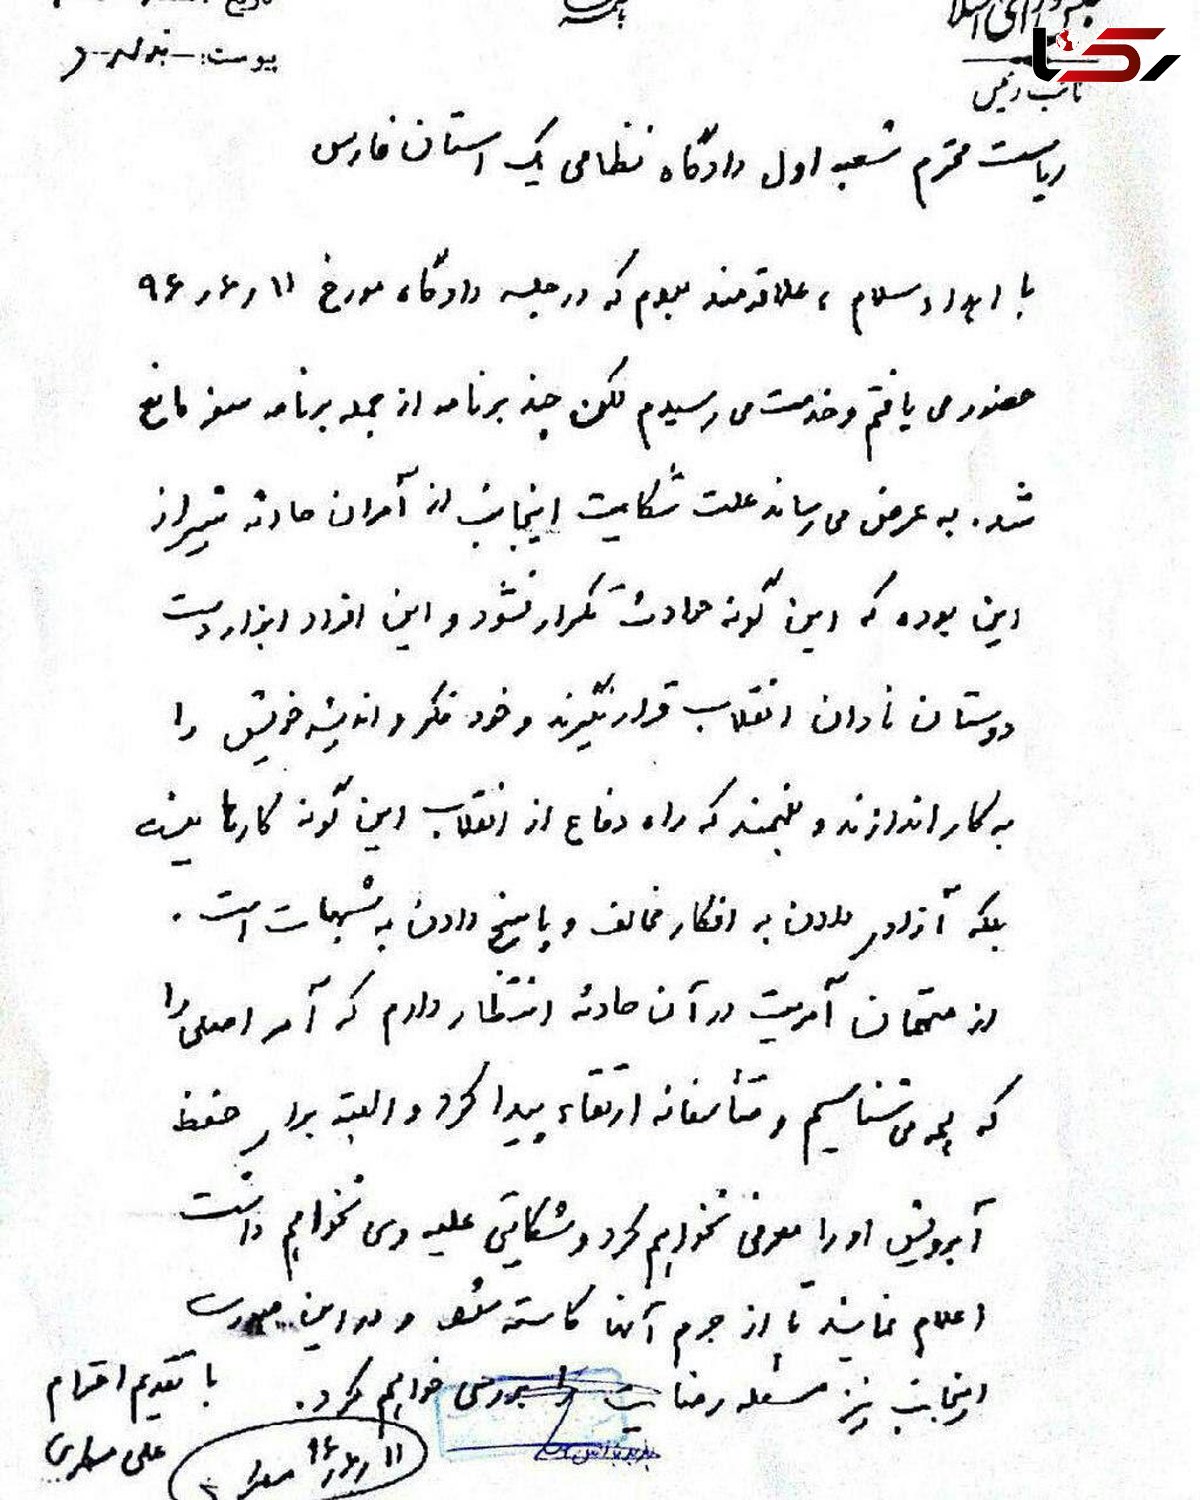 پیوست:
رکنا
نائب رئیس
ریاست محترم شعبه اول دادگاه نظامی یک استان فارس
با اهداء سلام ، علاقه‌مند بودم که در جلسه دادگاه مورخ ۱۱ر۴ر۹۶
حضور می یافتم و خدمت می رسیدم لکن چند برنامه از جمله برنامه سفر مانع
شد. به عرض می رساند علت شکایت اینجانب از آمران حادثه شیراز
این بوده که این گونه حوادث تکرار نشود و این افراد ابزار دست
دوستان نادان انقلاب قرار نگیرند و خود فکر و اندیشه خویش را
به کار اندازند و بفهمند که راه دفاع از انقلاب این گونه کارها نیست
بلکه آزادی دادن به افکار مخالف و پاسخ دادن به شبهات است.
از متهمان آمریت در آن حادثه انتظار دارم که آمر اصلی را
که همه می شناسیم و متأسفانه ارتقاء پیدا کرد و البته برای حفظ
آبرویش او را معرفی نخواهم کرد و شکایتی علیه وی نخواهم داشت
اعلام نمایند تا از جرم آنها کاسته شود و در این صورت
اینجانب نیز مسئله رضایت را بررسی خواهم کرد.
با تقدیم احترام
علی مطهری
۱۱ر۴ر۹۶